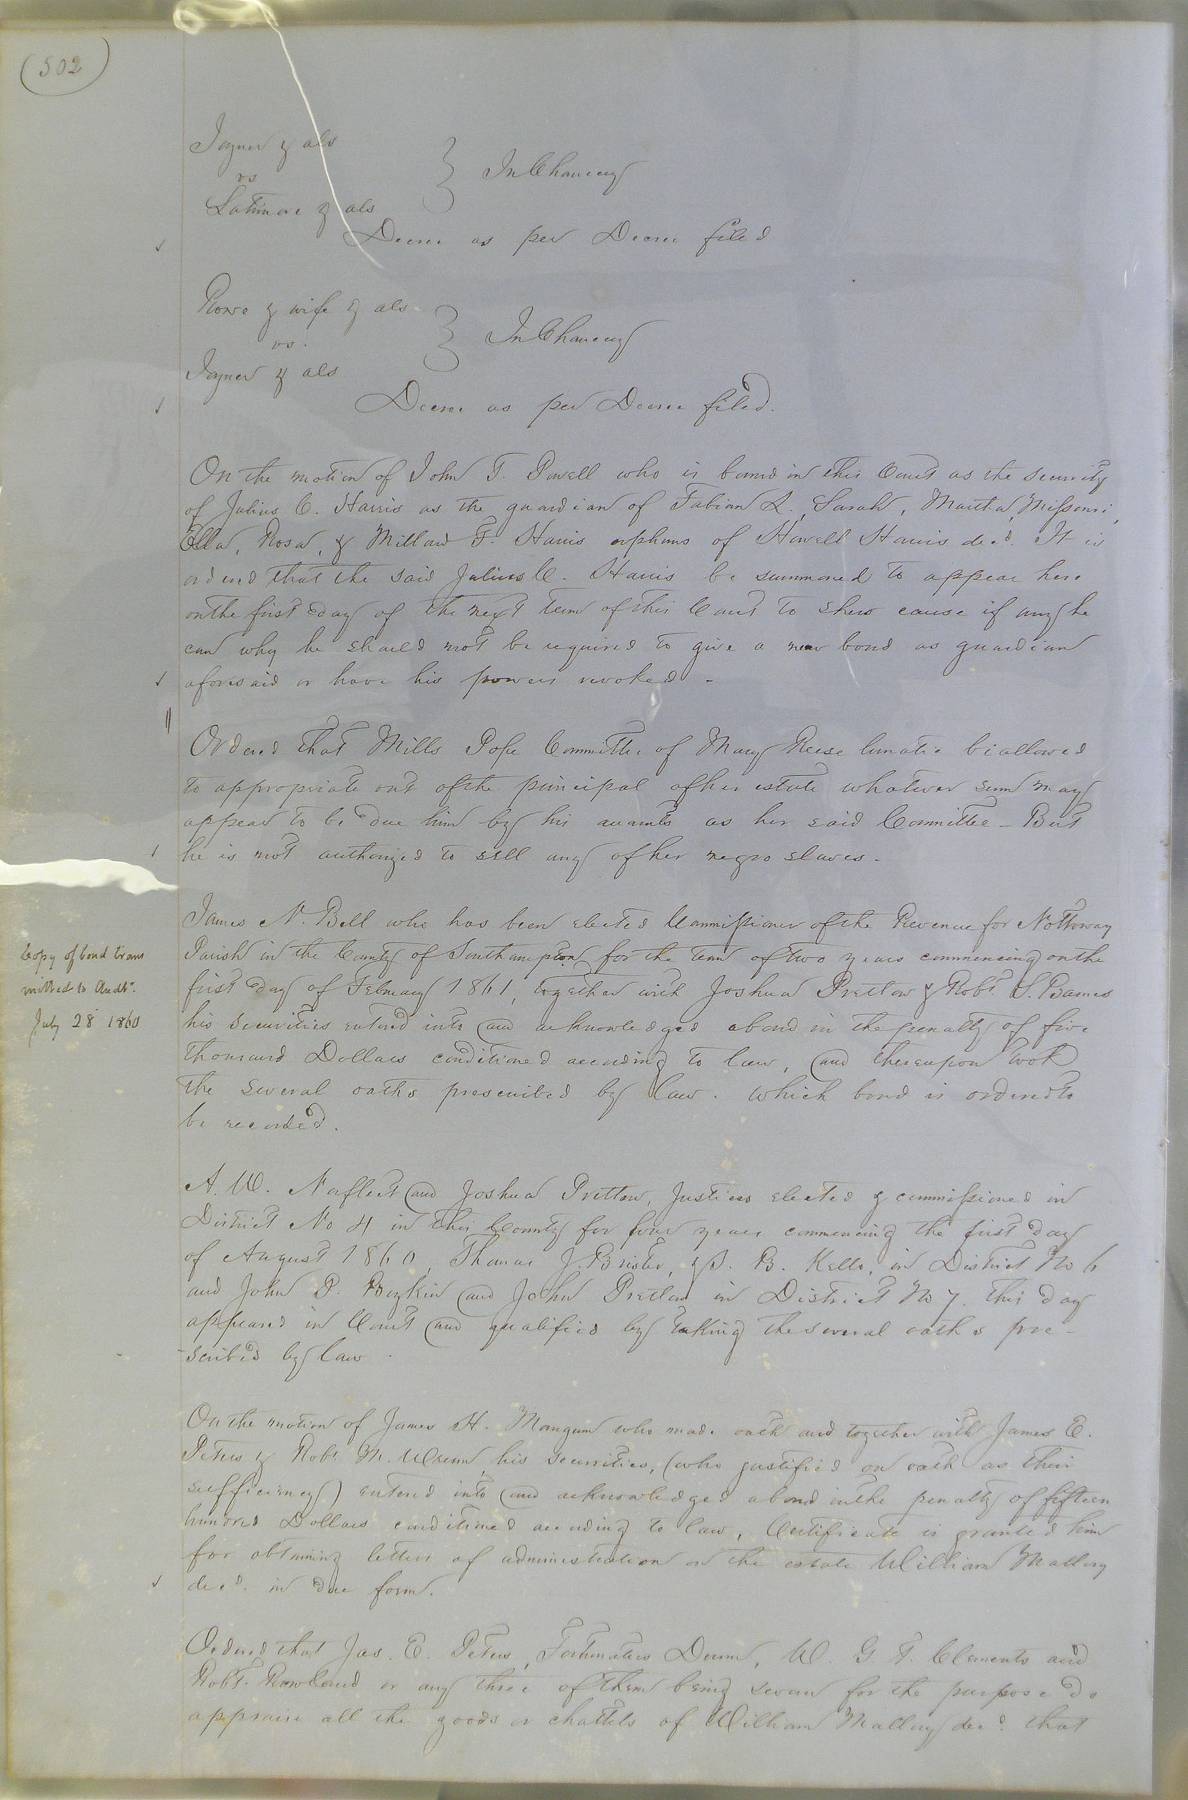 (502)
Joyner & als
vs
Latimore & als
} In Chancery
Decree as per Decree filed
Rowe & wife & als
vs.
Joyner & als
} In Chancery
Decree as per Decree filed.
On the motion of John T. Powell who is bound in this Court as the security
of Julius C. Harris as the guardian of Fabian L., Sarah, Martha, Missouri,
Ella, Rosa, & Millard F. Harris orphans of Howell Harris decd. It is
ordered that the said Julius C. Harris be summoned to appear here
on the first day of the next term of this Court to shew cause if any he
can why he should not be required to give a new bond as guardian
aforesaid or have his powers revoked -
Ordered that Mills Pope Committee of Mary Reese lunatic be allowed
to appropriate out of the principal of her estate whatever sum may
appear to be due him by his accounts as her said Committee - But
he is not authorized to sell any of her negro slaves.
James N. Bell who has been elected Commissioner of the Revenue for Nottoway
Parish in the County of Southampton for the term of two years commencing on the
first day of February 1861, together with Joshua Pretlow & Robt S. Barnes
his securities entered into and acknowledged a bond in the penalty of five
thousand Dollars conditioned according to law, and thereupon took
the several oaths prescribed by law. which bond is ordered to
be recorded.
Copy of bond trans
mitted to Audr.
July 28 1860
A. W. Norfleet and Joshua Pretlow, Justices elected & commissioned in
District No 4 in this County for four years commencing the first day
of August 1860, Thomas J. Brister, & S. B. Kello, in District No 6
and John P. Boykin and John Pretlow in District No 7. this day
appeared in Court and qualified by taking the several oaths pre-
scribed by law.
On the motion of James H. Mangum who made oath and together with James E.
Peters & Robt M. Wrenn his securities, (who justified on oath as their
sufficiency) entered into and acknowledged a bond in the penalty of fifteen
hundred Dollars conditioned according to law, Certificate is granted him
for obtaining letters of administration on the estate William Mallory
decd. in due form.
Ordered that Jas. E. Peters, Fortunatus Dunn, W. G. T. Clements and
Robt. Rowland or any three of them being sworn for the purpose do
appraise all the goods or chattels of William Mallory decd. that